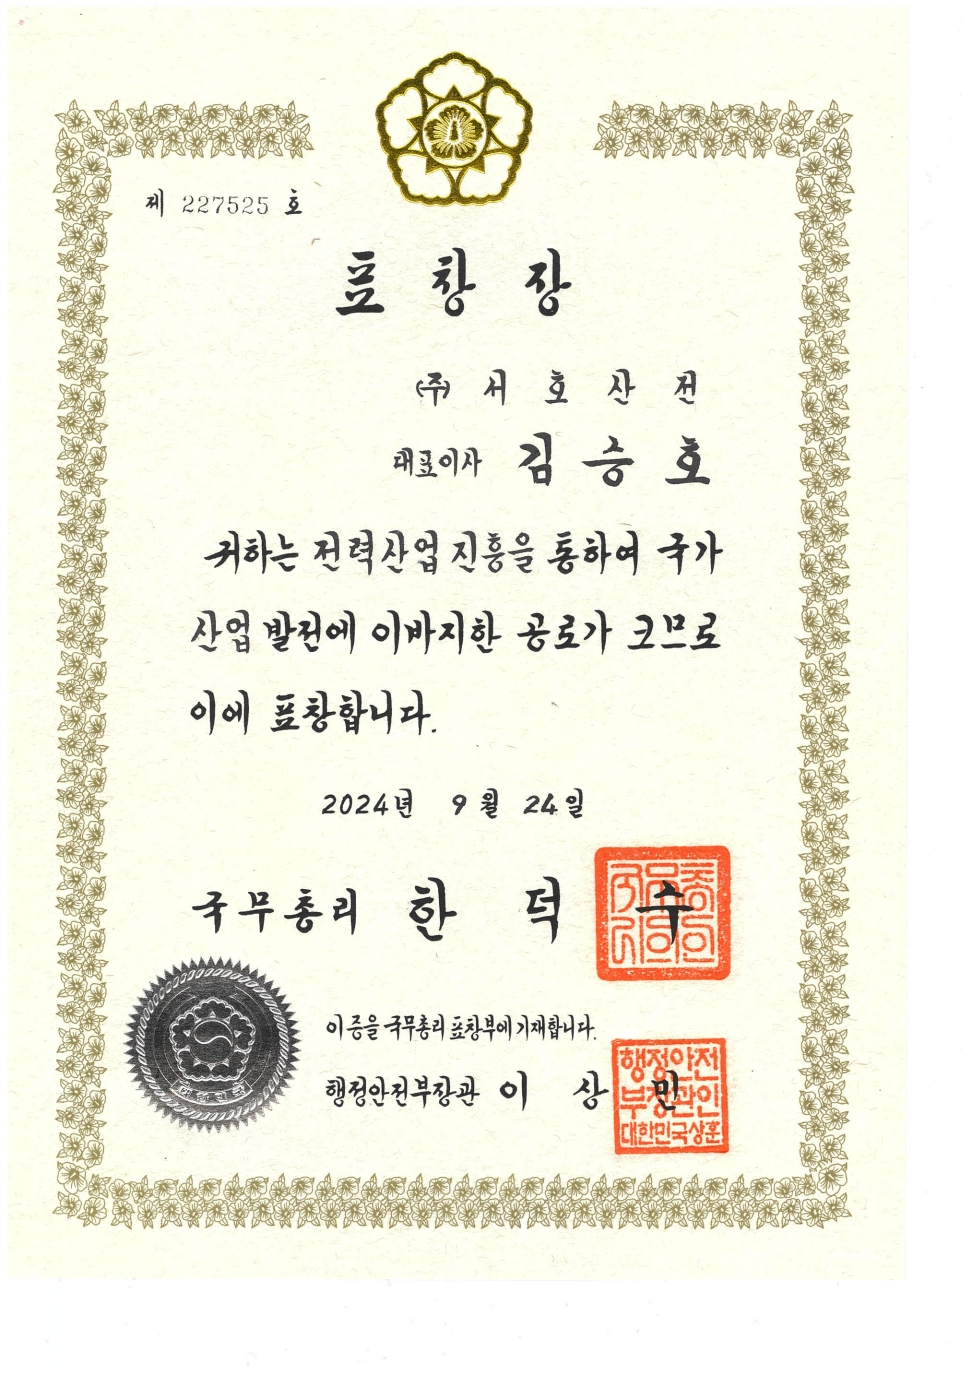 제 227525 호
표 창 장
(주) 서 호 산 전
대표이사 김 승 호
귀하는 전력산업 진흥을 통하여 국가
산업 발전에 이바지한 공로가 크므로
이에 표창합니다.
2024년 9월 24일
국무총리 한 덕 수
이 증을 국무총리 표창부에 기재합니다.
행정안전부장관 이 상 민
행정안전
부장관인
대한민국상훈